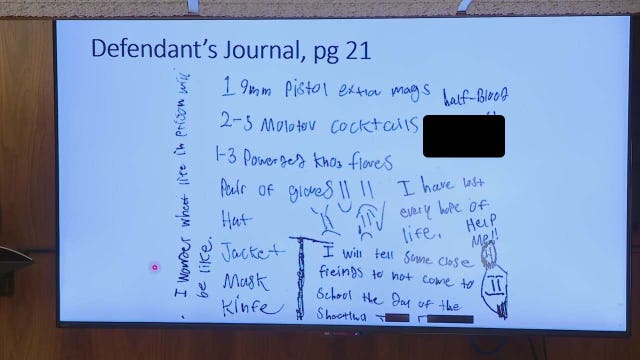 Defendant's Journal, pg 21
1 9mm Pistol extra mags
half-Blood
2-5 Molotov cocktails
1-3 Powerges
flares
Pair of gloves
I have lost
every hope of
life.
Help
Me!!
Hat
Jacket
Mask
Kinfe
I will tell some close
freings to not come to
School the day of the
I wonder what life in prison will
be like.